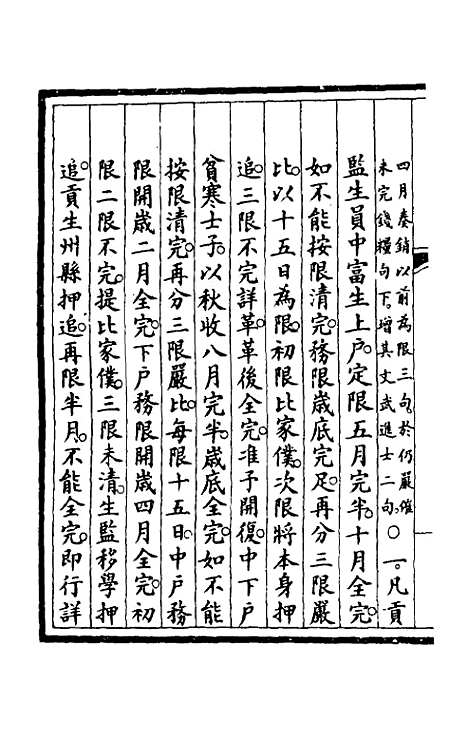 四月奏銷以前為限三句。於仍嚴催
未完錢糧句下。增其文武進士二句。○一。凡貢
監生員中富生上戶。定限五月完半。十月全完。
如不能按限清完。務限歲底完足。再分三限嚴
比。以十五日為限。初限比家僕。次限將本身押
追。三限不完詳革。革後全完。准予開復。中下戶
貧寒士子。以秋收八月完半。歲底全完。如不能
按限清完。再分三限嚴比。每限十五日。中戶務
限開歲二月全完。下戶務限開歲四月全完。初
限二限不完。提比家僕。三限未清。生監移學押
追。貢生州縣押追。再限半月。不能全完。即行詳